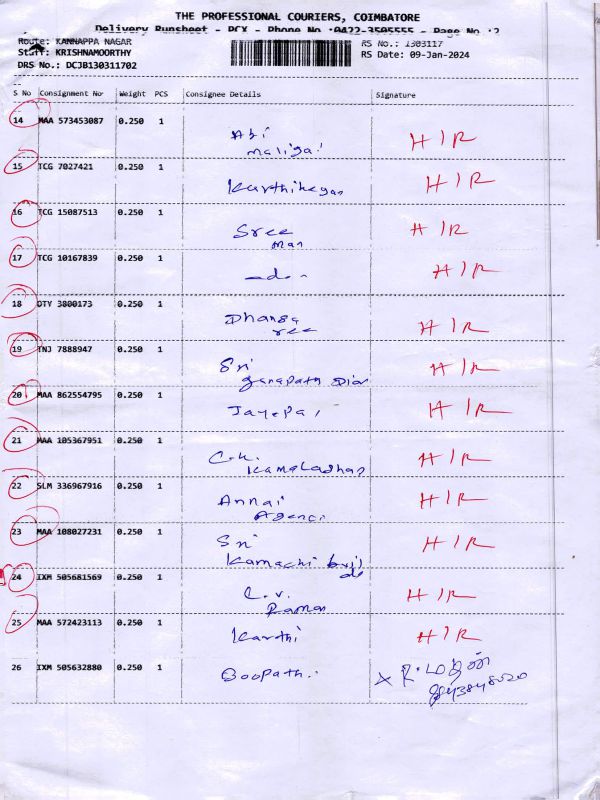 THE PROFESSIONAL COURIERS, COIMBATORE
Delivery Runsheet - PCX - Phone No :0422-3505555 - Page No :2
Route: KANNAPPA NAGAR RS No.: 1303117
Staff: KRISHNAMOORTHY RS Date: 09-Jan-2024
DRS No.: DCJB130311702
S No Consignment No Weight PCS Consignee Details Signature
14 MAA 573453087 0.250 1 Abi H/R
maliga
15 TCG 7027421 0.250 1 Karthikeyan H/R
16 TCG 15087513 0.250 1 Sree H/R
man
17 TCG 10167839 0.250 1 -do- H/R
18 OTY 3800173 0.250 1 Dhanga H/R
ree
19 TNJ 7888947 0.250 1 Sri H/R
ganapath
20 MAA 862554795 0.250 1 Jayepal H/R
21 MAA 105367951 0.250 1 C.K. H/R
Kamaladhas
22 SLM 336967916 0.250 1 Annai H/R
Agenci
23 MAA 108027231 0.250 1 Sri H/R
Kamachi
24 IXM 505681569 0.250 1 C.V. H/R
Raman
25 MAA 572423113 0.250 1 Karthi H/R
26 IXM 505632880 0.250 1 Boopath.